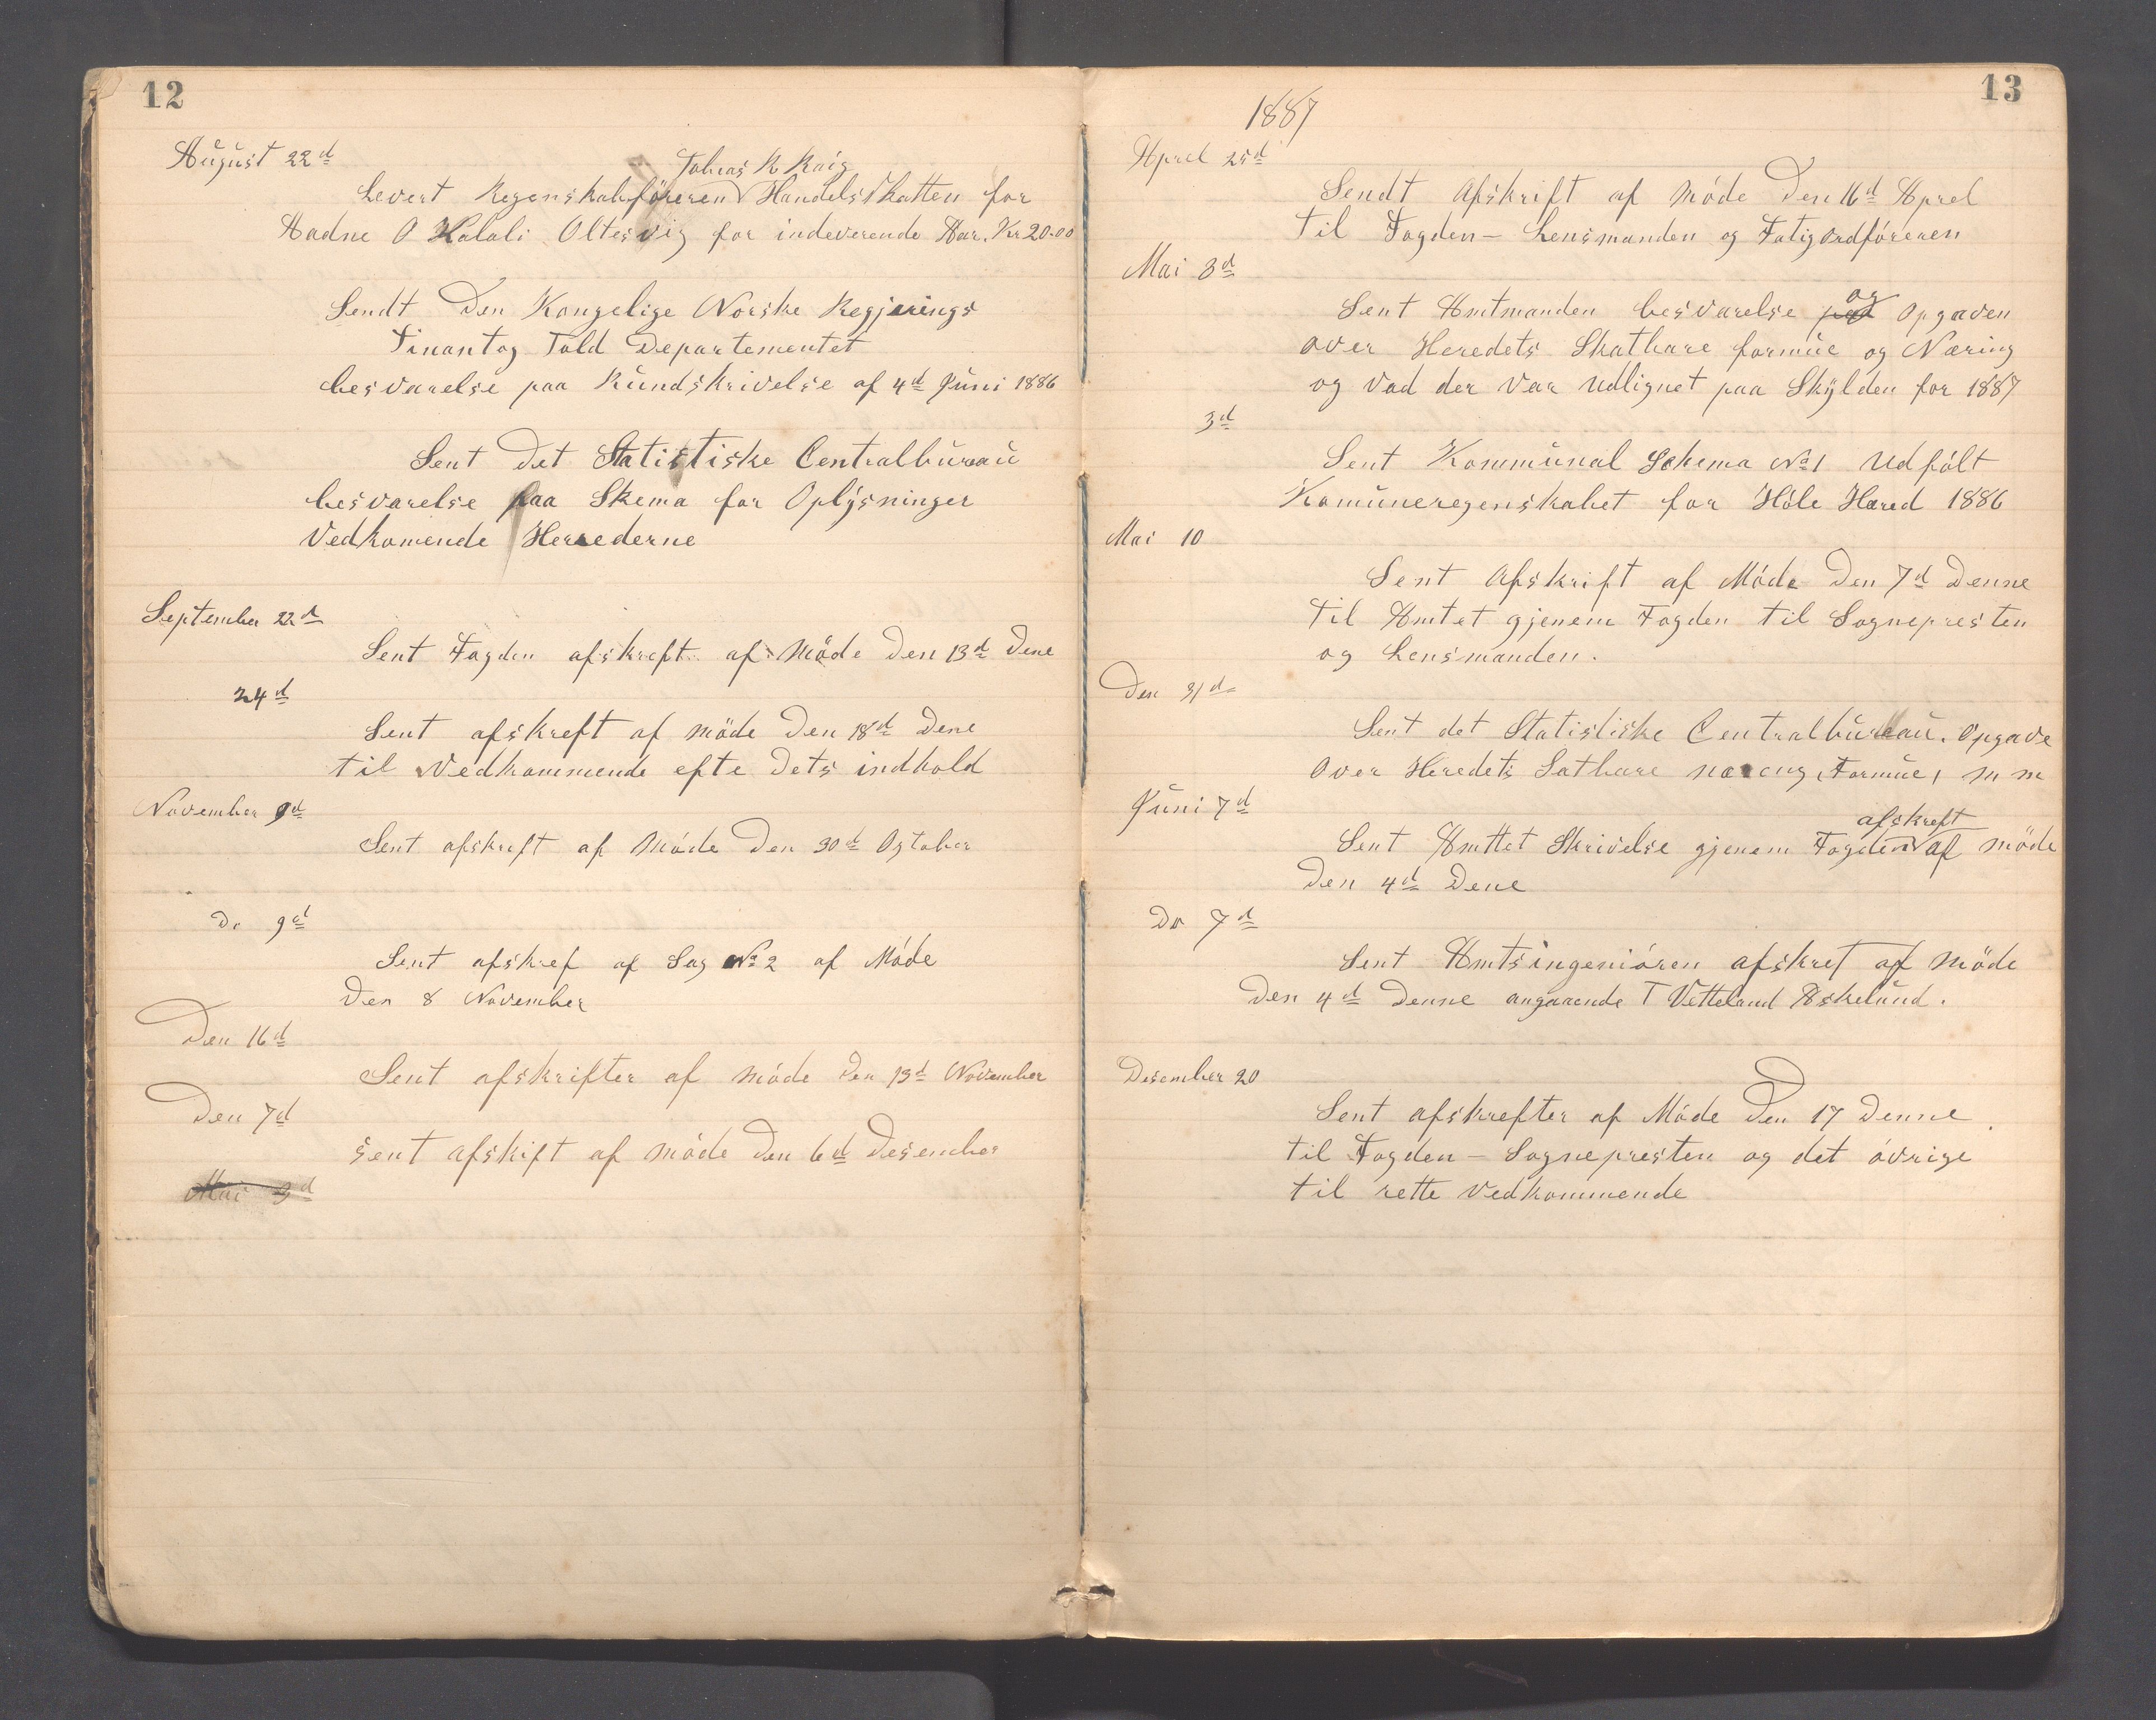 12
August 22d
Tobias R Raig
Levert Regenskabsföreren Handelsskatten for
Aadne O Kalali Oltesvig for indeverende Aar. Kr 20.00
Sendt Den Kongelige Norske Regjerings
Finant og Told Departementet
besvarelse paa Rundskrivelse af 4d Juni 1886
Sent Det Statistiske Centralbureau
besvarelse paa Skema for Oplysninger
Vedkomende Herrederne
September 22d
Sent Fogden afskreft af Möde Den 13d Dene
24d
Sent afskreft af möde Den 18d Dene
til Vedkommende efte Dets indhold
November 9d
Sent afskreft af Möde Den 30d Ogtober
Do 9d
Sent afskref af Sag No 2 af Möde
Den 8 November
Den 16d
Sent afskrifter af möde Den 13d November
Den 7d
Sent afskift af möde Den 6d Desember
Mai 3d
13
1887
Aprel 25d
Sendt Afskrift af Möde Den 16d Aprel
til Fogden - Lensmanden og Fatigordföreren
Mai 3d
Sent Amtmanden besvarelse og Opgaven
over Heredets Skatbare formue og Næring
og Vad der Var Udlignet paa Skylden for 1887
3d
Sent Kommunal Schema No 1 Udfölt
Komuneregenskabet for Höle Hæred 1886
Mai 10
Sent Afskrift af Möde Den 7d Denne
til Amtet gjenem Fogden til Sognepresten
og Lensmanden.
Den 31d
Sent det Statistiske Centralbureau. Opgave
Over Heredets Satbare næreng, Formue, m m
Juni 7d
afskreft
Sent Amttet Skrivelse gjenem Fogden af möde
Den 4d Dene
Do 7d
Sent Amtsingeniören afskret af möde
Den 4d Denne angaaende T Vetteland Eskelund.
Desember 20
Sent afskrefter af Möde Den 17 Denne
til Fogden - Sognepresten og det övrige
til rette Vedkommende